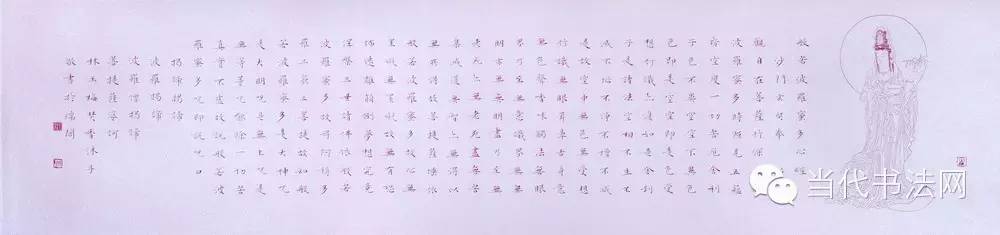 般若波羅蜜多心經
沙門玄奘奉
觀自在菩薩行深般若
波羅蜜多時照見五蘊
皆空度一切苦厄舍利
子色不異空空不異色
色即是空空即是色受
想行識亦復如是舍利
子是諸法空相不生不
滅不垢不淨不增不減
是故空中無色無受想
行識無眼耳鼻舌身意
無色聲香味觸法無眼
界乃至無意識界無無
明亦無無明盡乃至無
老死亦無老死盡無苦
集滅道無智亦無得以
無所得故菩提薩埵依
般若波羅蜜多故心無
罣礙無罣礙故無有恐
怖遠離顛倒夢想究竟
涅槃三世諸佛依般若
波羅蜜多故得阿耨多
羅三藐三菩提故知般
若波羅蜜多是大神咒
是大明咒是無上咒是
無等等咒能除一切苦
真實不虛故說般若波
羅蜜多咒即說咒曰
揭諦揭諦
波羅揭諦
波羅僧揭諦
菩提薩婆訶
林玉梅焚香沐手
敬書於
当代书法网